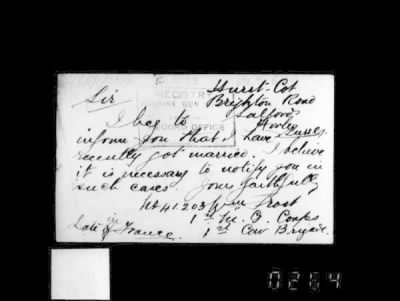 Hurst-Cot
Brighton Road
Salfords
Sir
REGISTRY
MACHINE GUN
RECORD OFFICE
I beg to
inform you that I have
recently got married. I believe
it is necessary to notify you in
such cases Yours faithfully
No 41203 Wm Frost
1st M. G. Corps
1st Cav Brigade.
Late in France.
0264